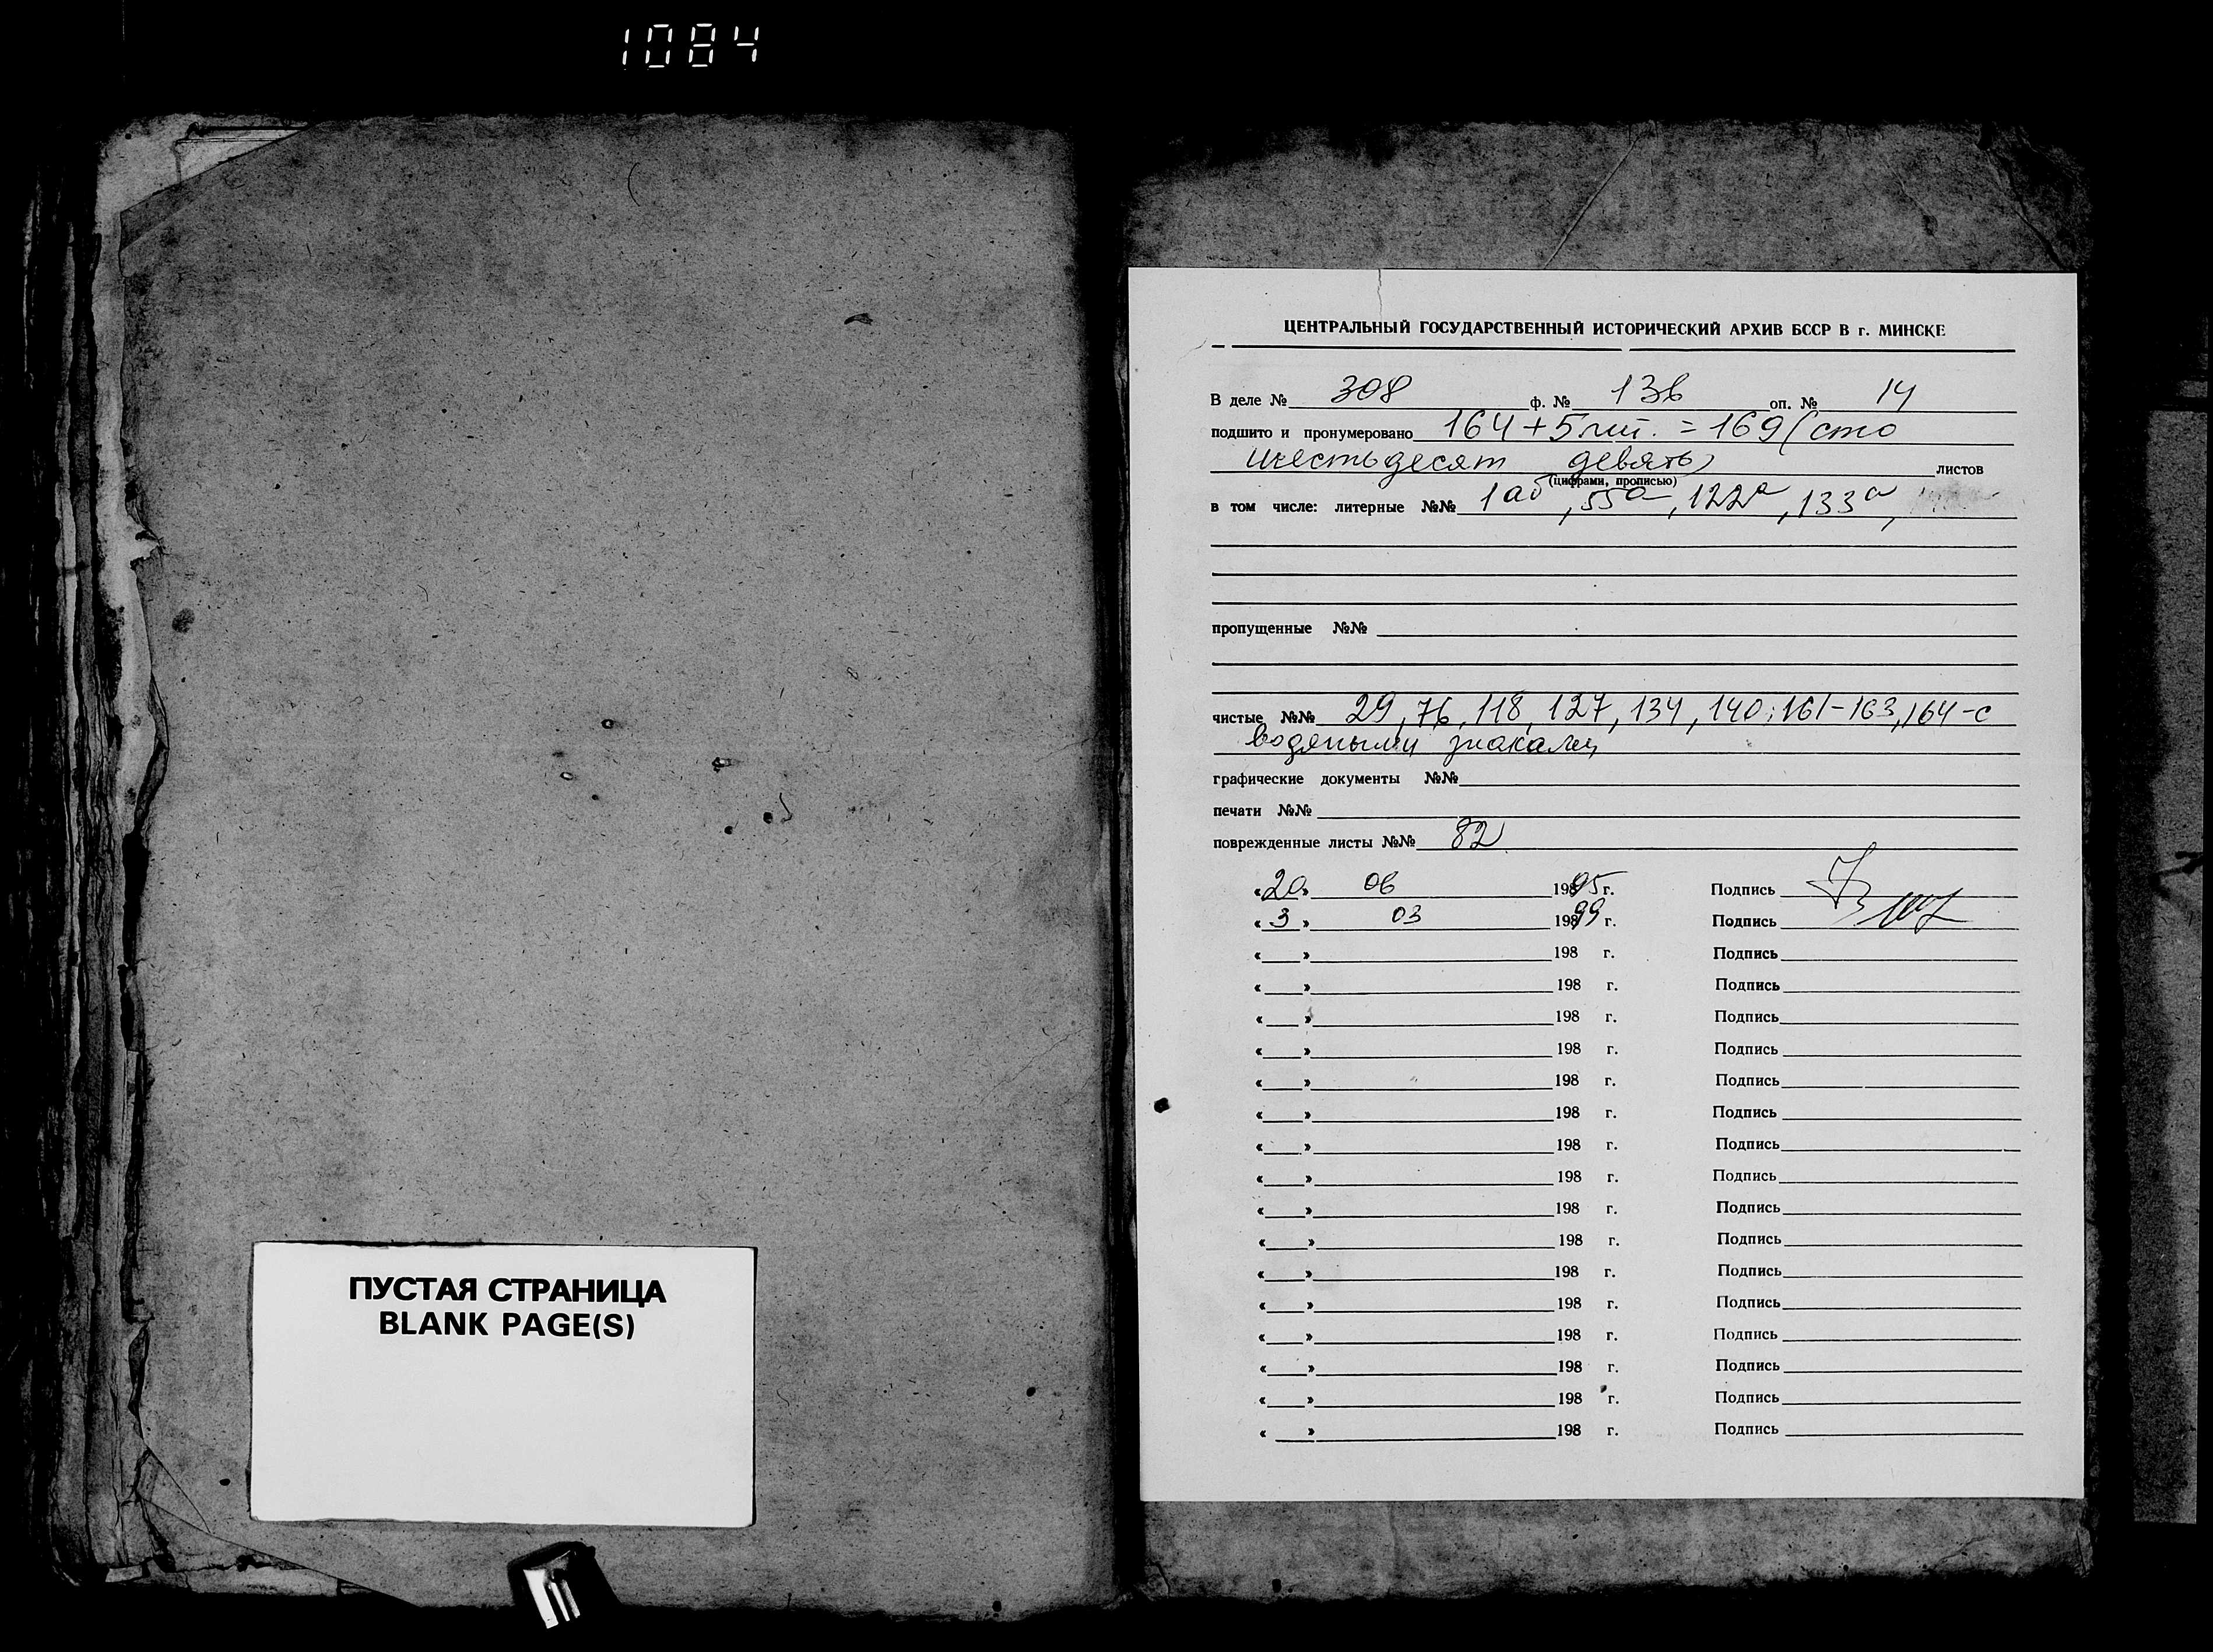 1084
ПУСТАЯ СТРАНИЦА
BLANK PAGE(S)
ЦЕНТРАЛЬНЫЙ ГОСУДАРСТВЕННЫЙ ИСТОРИЧЕСКИЙ АРХИВ БССР В г. МИНСКЕ
В деле № 308 ф. № 136 оп. № 14
подшито и пронумеровано 164+5 лит. = 169 (сто
шестьдесят девять) листов
(цифрами, прописью)
в том числе: литерные №№ 1аб, 55а, 122а, 133а,
пропущенные №№
чистые №№ 29, 76, 118, 127, 134, 140; 161-163, 164-с
водяными знаками
графические документы №№
печати №№
поврежденные листы №№ 82
«20» 06 1995 г. Подпись
«3» 03 1999 г. Подпись
« » 198 г. Подпись
« » 198 г. Подпись
« » 198 г. Подпись
« » 198 г. Подпись
« » 198 г. Подпись
« » 198 г. Подпись
« » 198 г. Подпись
« » 198 г. Подпись
« » 198 г. Подпись
« » 198 г. Подпись
« » 198 г. Подпись
« » 198 г. Подпись
« » 198 г. Подпись
« » 198 г. Подпись
« » 198 г. Подпись
« » 198 г. Подпись